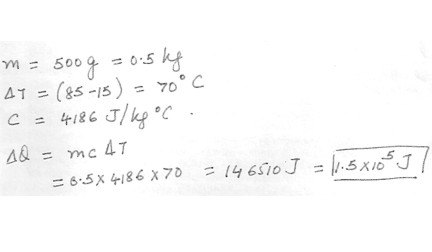 m = 500g = 0.5 kg
ΔT = (85-15) = 70°C
C = 4186 J/kg °C .
ΔQ = mc ΔT
= 0.5 x 4186 x 70 = 146510 J = 1.5 x 10⁵ J